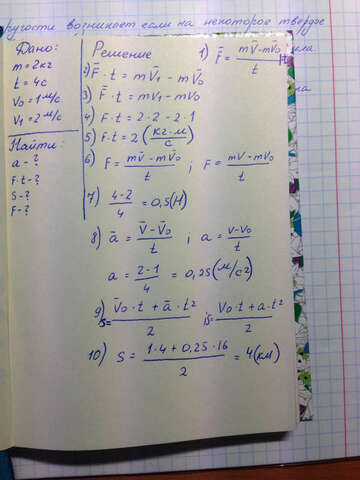 ругости возникает если на некоторое твердое
Дано:
m = 2кг
t = 4с
V0 = 1 м/с
V1 = 2 м/с
Найти:
a - ?
F·t - ?
S - ?
F - ?
Решение
1) F̄ = (mV̄ - mV̄0)/t
2) F̄ · t = mV̄1 - mV̄0
3) F̄ · t = mV1 - mV0
4) F·t = 2·2 - 2·1
5) F·t = 2 (кг·м/с)
6) F = (mV̄ - mV̄0)/t ; F = (mV - mV0)/t
7) (4-2)/4 = 0,5(Н)
8) ā = (V̄ - V̄0)/t ; a = (V - V0)/t
a = (2-1)/4 = 0,25 (м/с2)
9) S = (V̄0·t + ā·t²)/2 ; S = (V0·t + a·t²)/2
10) S = (1·4 + 0,25·16)/2 = 4(км)